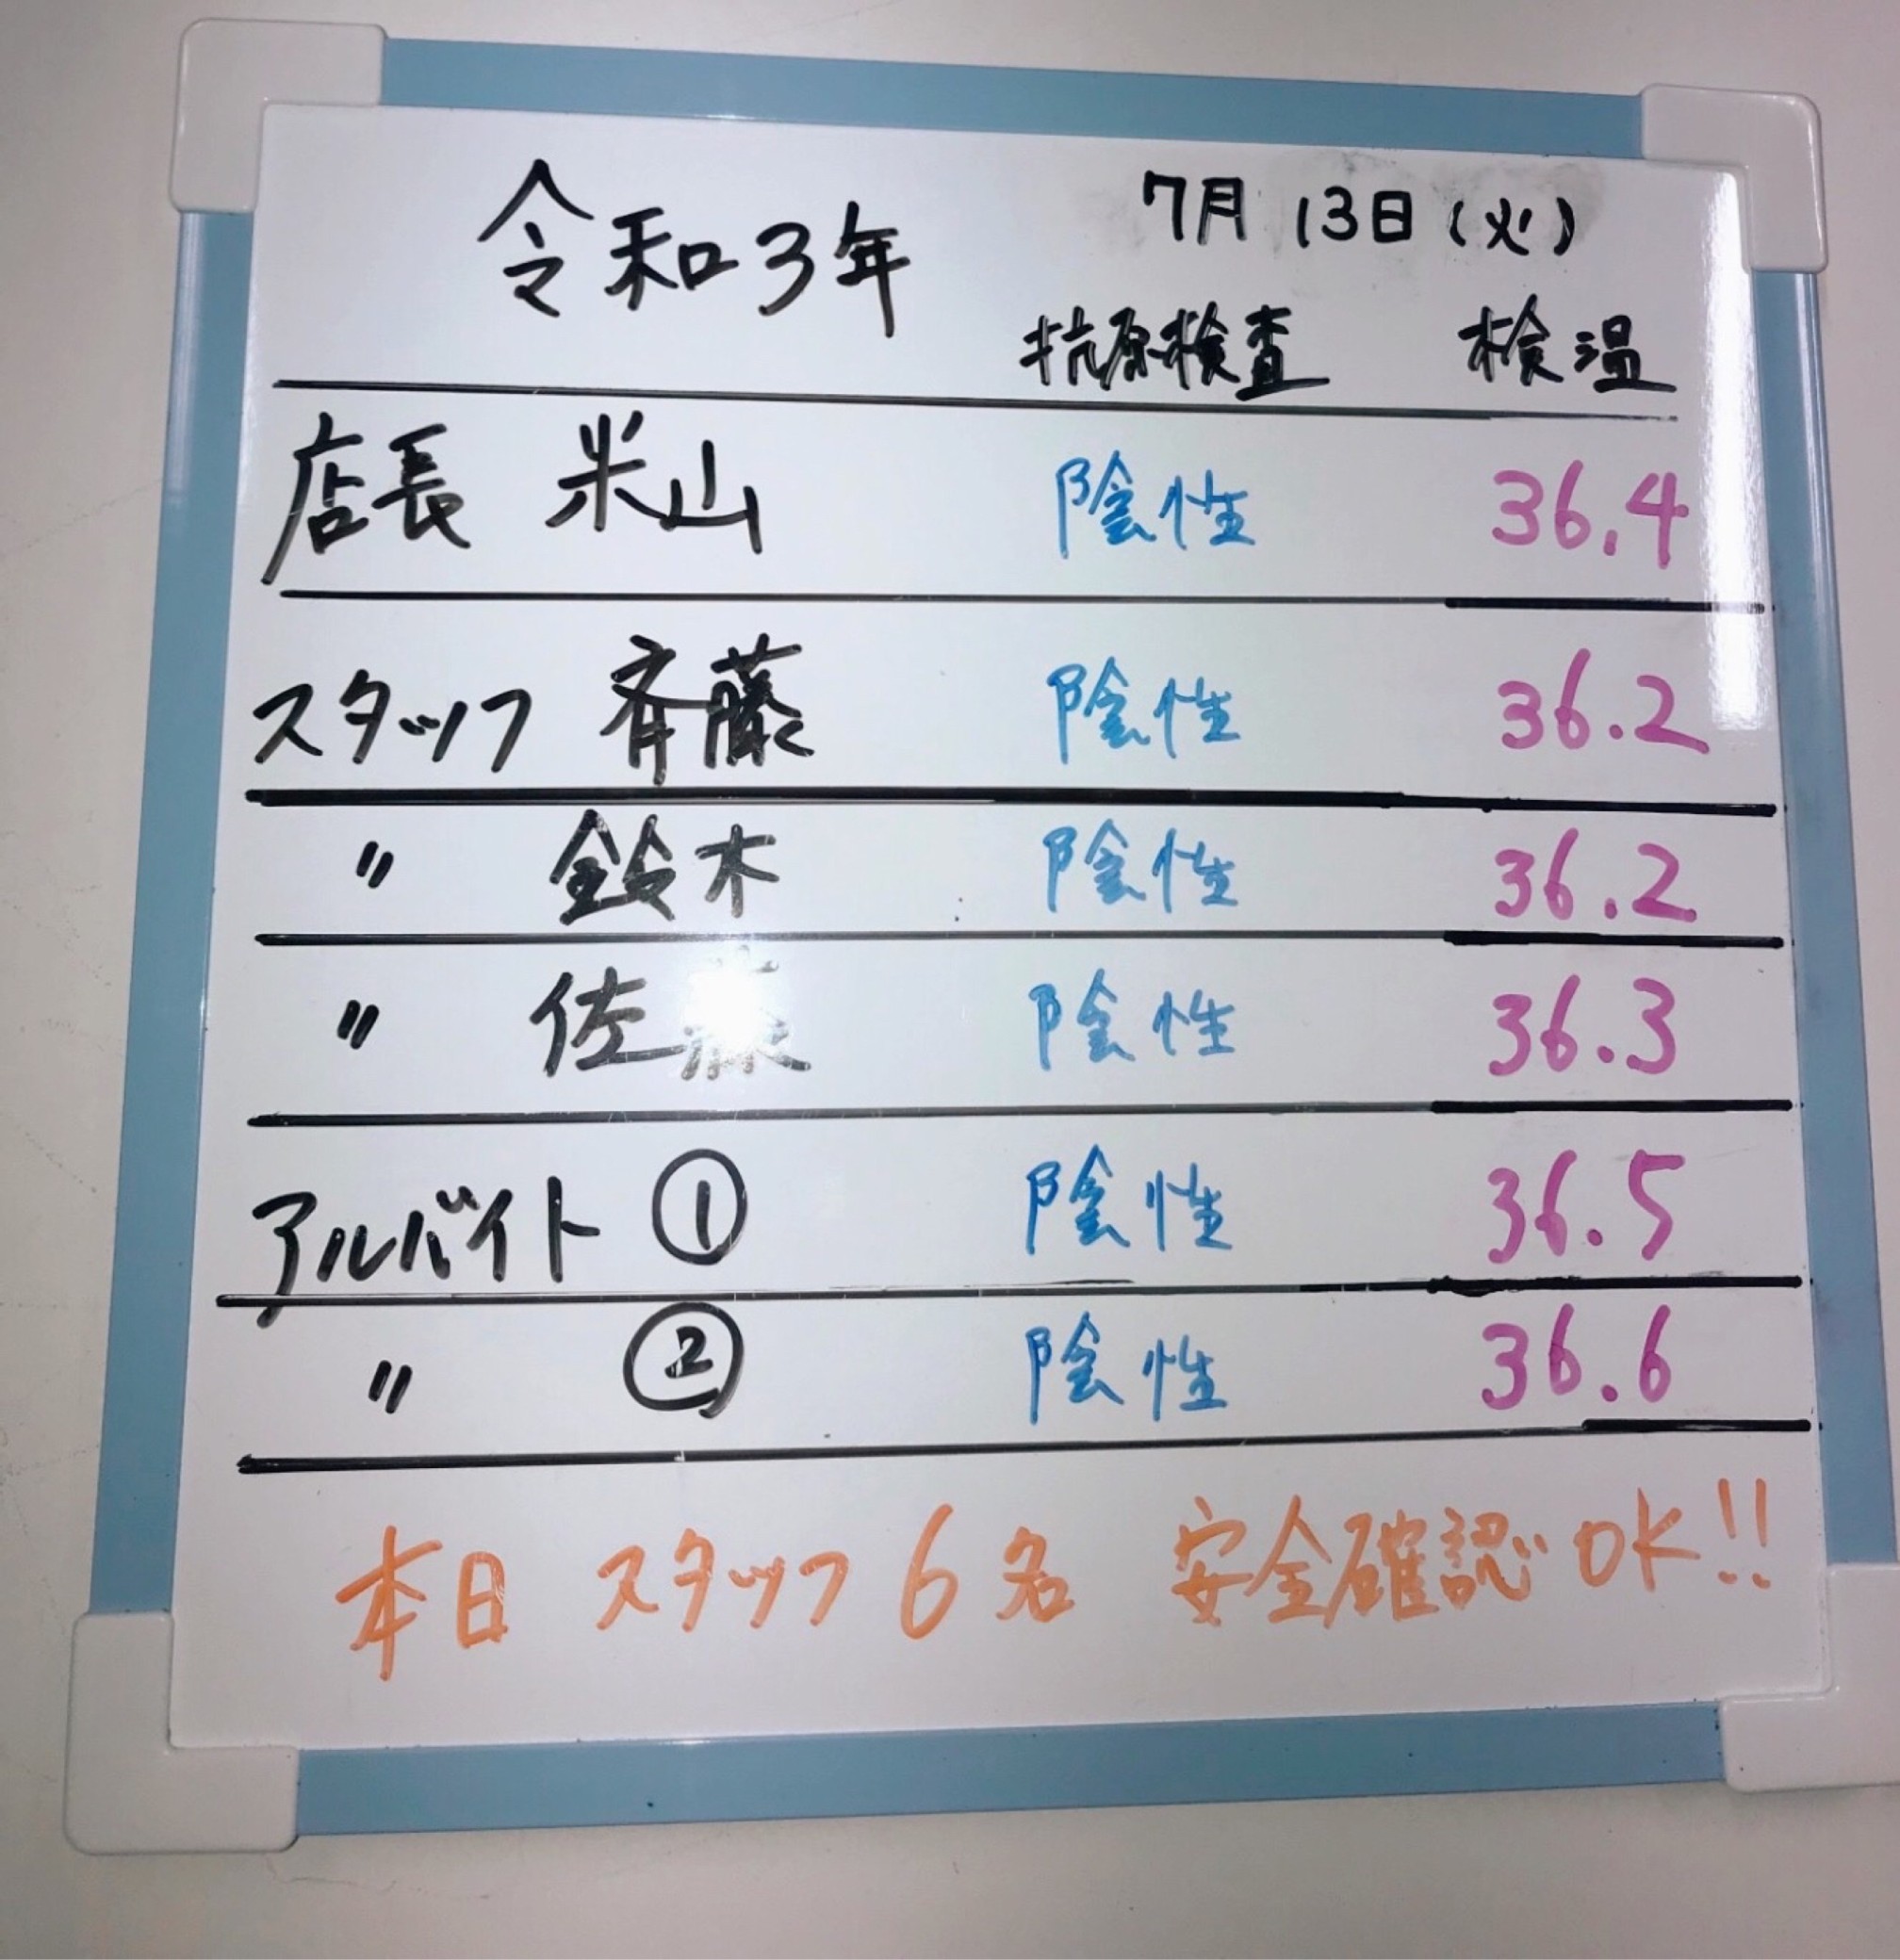 令和3年 7月13日(火)
抗原検査 検温
店長 米山 陰性 36.4
スタッフ 斉藤 陰性 36.2
〃 鈴木 陰性 36.2
〃 佐藤 陰性 36.3
アルバイト ① 陰性 36.5
〃 ② 陰性 36.6
本日 スタッフ 6名 安全確認OK!!